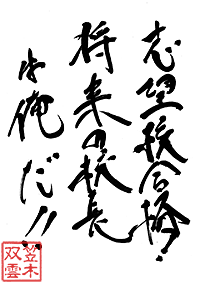 志望校合格!
将来の校長
は俺だ!!
笠木
双雲